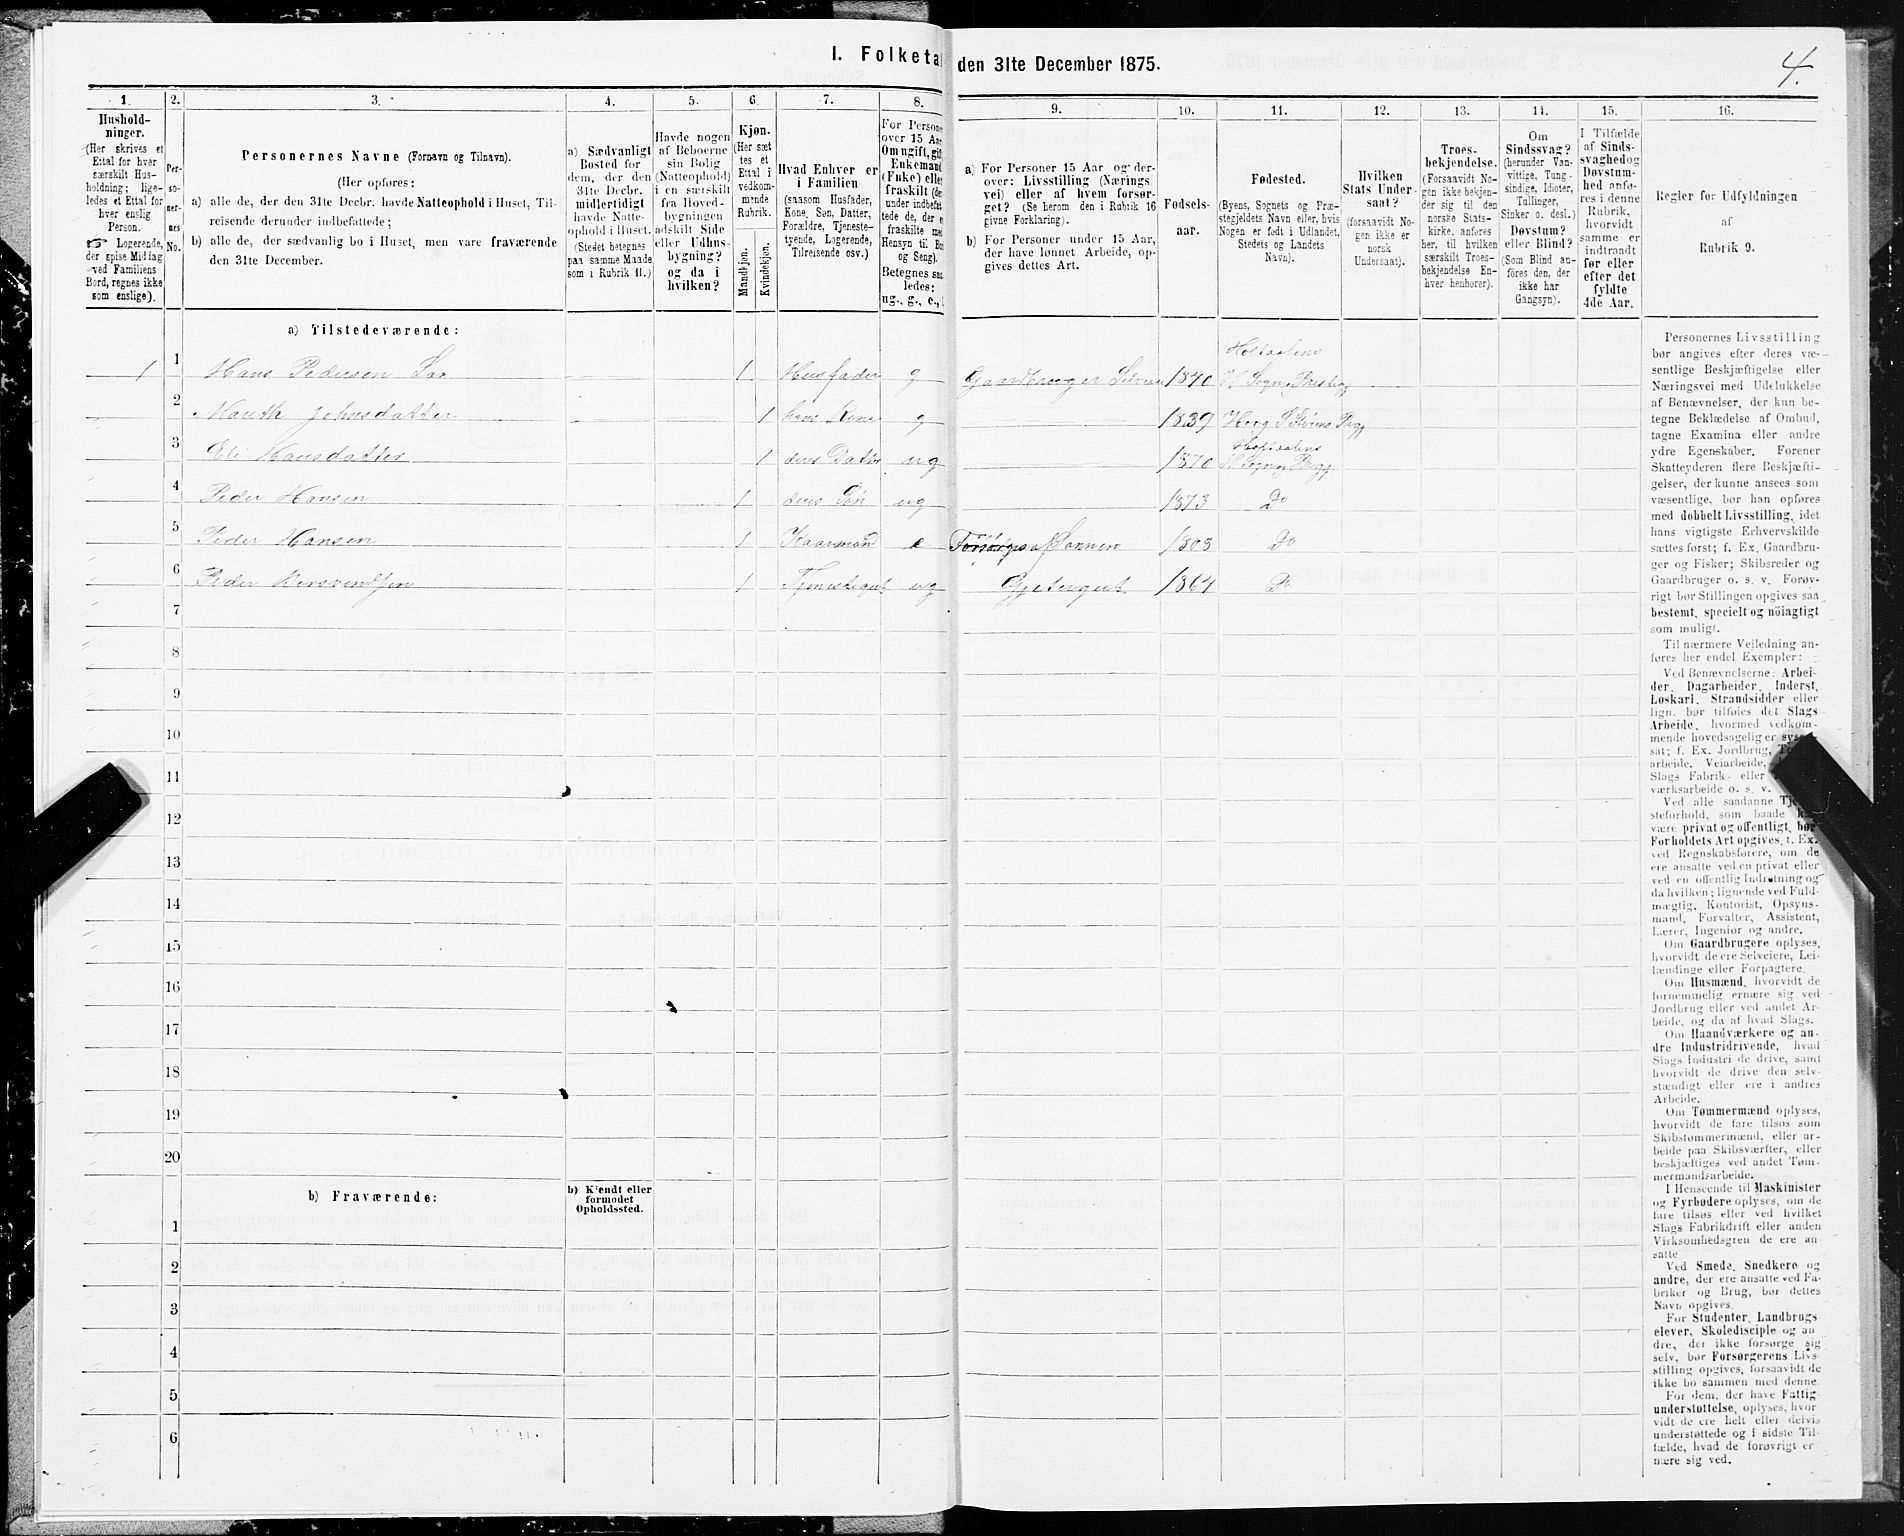 I. Folketal den 31te December 1875.
4.
1.
Hushold-
ninger.
(Her skrives et
Ettal for hver
særskilt Hus-
holdning; lige-
ledes et Ettal for
hver enslig
Person.
☞ Logerende,
der spise Middag
ved Familiens
Bord, regnes ikke
som enslige).
2.
Per-
so-
ner-
nes
No.
3.
Personernes Navne (Fornavn og Tilnavn).
(Her opføres:
a) alle de, der den 31te Decbr. havde Natteophold i Huset, Til-
reisende derunder indbefattede;
b) alle de, der sædvanlig bo i Huset, men vare fraværende
den 31te December.
4.
a) Sædvanligt
Bosted for
dem, der den
31te Decbr.
midlertidigt
havde Natte-
ophold i Huset.
(Stedet betegnes
paa samme Maade
som i Rubrik 11.)
5.
Havde nogen
af Beboerne
sin Bolig
(Natteophold)
i en særskilt
fra Hoved-
bygningen
adskilt Side
eller Udhus-
bygning?
og da i
hvilken?
6.
Kjøn.
(Her sæt
tes et
Ettal i
vedkom-
mende
Rubrik.
Mandkjøn.
Kvindekjøn.
7.
Hvad Enhver er
i Familien
(saasom Husfader,
Kone, Søn, Datter,
Forældre, Tjeneste-
tyende, Logerende,
Tilreisende osv.)
8.
For Persone
over 15 Aar
Om ugift, gif
Enkemand
(Enke) elle
fraskilt (der
under indbefat
tede de, der e
fraskilte me
Hensyn til Bo
og Seng).
Betegnes saa
ledes:
ug., g., e.,
9.
a) For Personer 15 Aar og der-
over: Livsstilling (Nærings
vei) eller af hvem forsør-
get? (Se herom den i Rubrik 16
givne Forklaring).
b) For Personer under 15 Aar,
der have lønnet Arbeide, op-
gives dettes Art.
10.
Fødsels-
aar.
11.
Fødested.
(Byens, Sognets og Præ-
stegjeldets Navn eller, hvis
Nogen er født i Udlandet,
Stedets og Landets
Navn).
12.
Hvilken
Stats Under-
saat?
(forsaavidt No-
gen ikke er
norsk
Undersaat).
13.
Troes-
bekjendelse.
(Forsaavidt No-
gen ikke bekjen-
der sig til den
norske Stats-
kirke, anføres
her, til hvilken
særskilt Troes-
bekjendelse En-
hver henhører).
14.
Om
Sindssvag?
(herunder Van-
vittige, Tung-
sindige, Idioter,
Tullinger,
Sinker o. desl.)
Døvstum?
eller Blind?
(Som Blind an-
føres den, der
ikke har
Gangsyn).
15.
I Tilfælde
af Sinds-
svaghed og
Døvstum-
hed anfø-
res i denne
Rubrik,
hvorvidt
samme er
indtraadt
før eller
efter det
fyldte
4de Aar.
16.
Regler for Udfyldningen
af
Rubrik 9.
a) Tilstedeværende:
1 1 Hans Pedersen 1 Husfader g Gaardbruger Selveier 1840 Holtaalens H. Sogn Prestegj
2 Marith Johnsdatter 1 hans Kone g 1839 Horg S Størens Pgj
3 Eli Hansdatter 1 deres Datter ug 1870 Holtaalens H Sogn Prgj
4 Peder Hansen 1 deres Søn ug 1873 Do
5 Peder Hansen 1 Kaarmand e Forsørges af Sønnen 1808 Do
6 Peder Bersvendsen 1 Tjenestegut ug Gjetergut 1864 Do
7
8
9
10
11
12
13
14
15
16
17
18
19
20
b) Fraværende:
b) Kjendt eller
formodet
Opholdssted.
1
2
3
4
5
6
Personernes Livsstilling
bør angives efter deres væ-
sentlige Beskjæftigelse eller
Næringsvei med Udelukkelse
af Benævnelser, der kun be-
tegne Beklædelse af Ombud,
tagne Examina eller andre
ydre Egenskaber. Forener
Skatteyderen flere Beskjæfti-
gelser, der kunne ansees som
væsentlige, bør han opføres
med dobbelt Livsstilling, idet
hans vigtigste Erhvervskilde
sættes først; f. Ex. Gaardbru-
ger og Fisker; Skibsreder og
Gaardbruger o. s. v. Forøv-
rigt bør Stillingen opgives saa
bestemt, specielt og nöiagtigt
som muligt.
Til nærmere Veiledning an-
føres her endel Exempler:
Ved Benævnelserne: Arbei-
der, Dagarbeider, Inderst,
Løskarl, Strandsidder eller
lign. bør tilføies det Slags
Arbeide, hvormed vedkom-
mende hovedsagelig er syssel-
sat; f. Ex. Jordbrug,
arbeide, Veiarbeide,
Slags Fabrik- eller
værksarbeide o. s. v.
Ved alle saadanne Tje-
steforhold, som baade
være privat og offentligt, bør
Forholdets Art opgives, t. Ex.
ved Regnskabsførere, om de
ere ansatte ved en privat eller
ved en offentlig Indretning og
da hvilken; lignende ved Fuld-
mægtig, Kontorist, Opsyns-
mand, Forvalter, Assistent,
Lærer, Ingeniør og andre.
Om Gaardbrugere oplyses,
hvorvidt de ere Selveiere, Lei-
lændinge eller Forpagtere.
Om Husmænd, hvorvidt de
fornemmelig ernære sig ved
Jordbrug eller ved andet Ar-
beide, og da af hvad Slags.
Om Haandværkere og an-
dre Industridrivende, hvad
Slags Industri de drive, samt
hvorvidt de drive den selv-
stændigt eller ere i andres
Arbeide.
Om Tømmermænd oplyses,
hvorvidt de fare tilsøs som
Skibstømmermænd, eller ar-
beide paa Skibsværfter, eller
beskjæftiges ved andet Tøm-
mermandsarbeide.
I Henseende til Maskinister
og Fyrbødere oplyses, om de
fare tilsøs eller ved hvilket
Slags Fabrikdrift eller anden
Virksomhedsgren de ere an-
satte.
Ved Smede, Snedkere og
andre, der ere ansatte ved Fa-
briker og Brug, bør dettes
Navn opgives.
For Studenter, Landbrugs
elever, Skoledisciple og an
dre, der ikke forsørge sig
selv, bør Forsørgerens Livs-
stilling opgives, forsaavidt de
ikke bo sammen med denne.
For dem, der have Fattig-
understøttelse, oplyses, hvor
vidt de ere helt eller delvis
understøttede og i sidste Til-
fælde, hvad de forøvrigt er
nære sig ved.